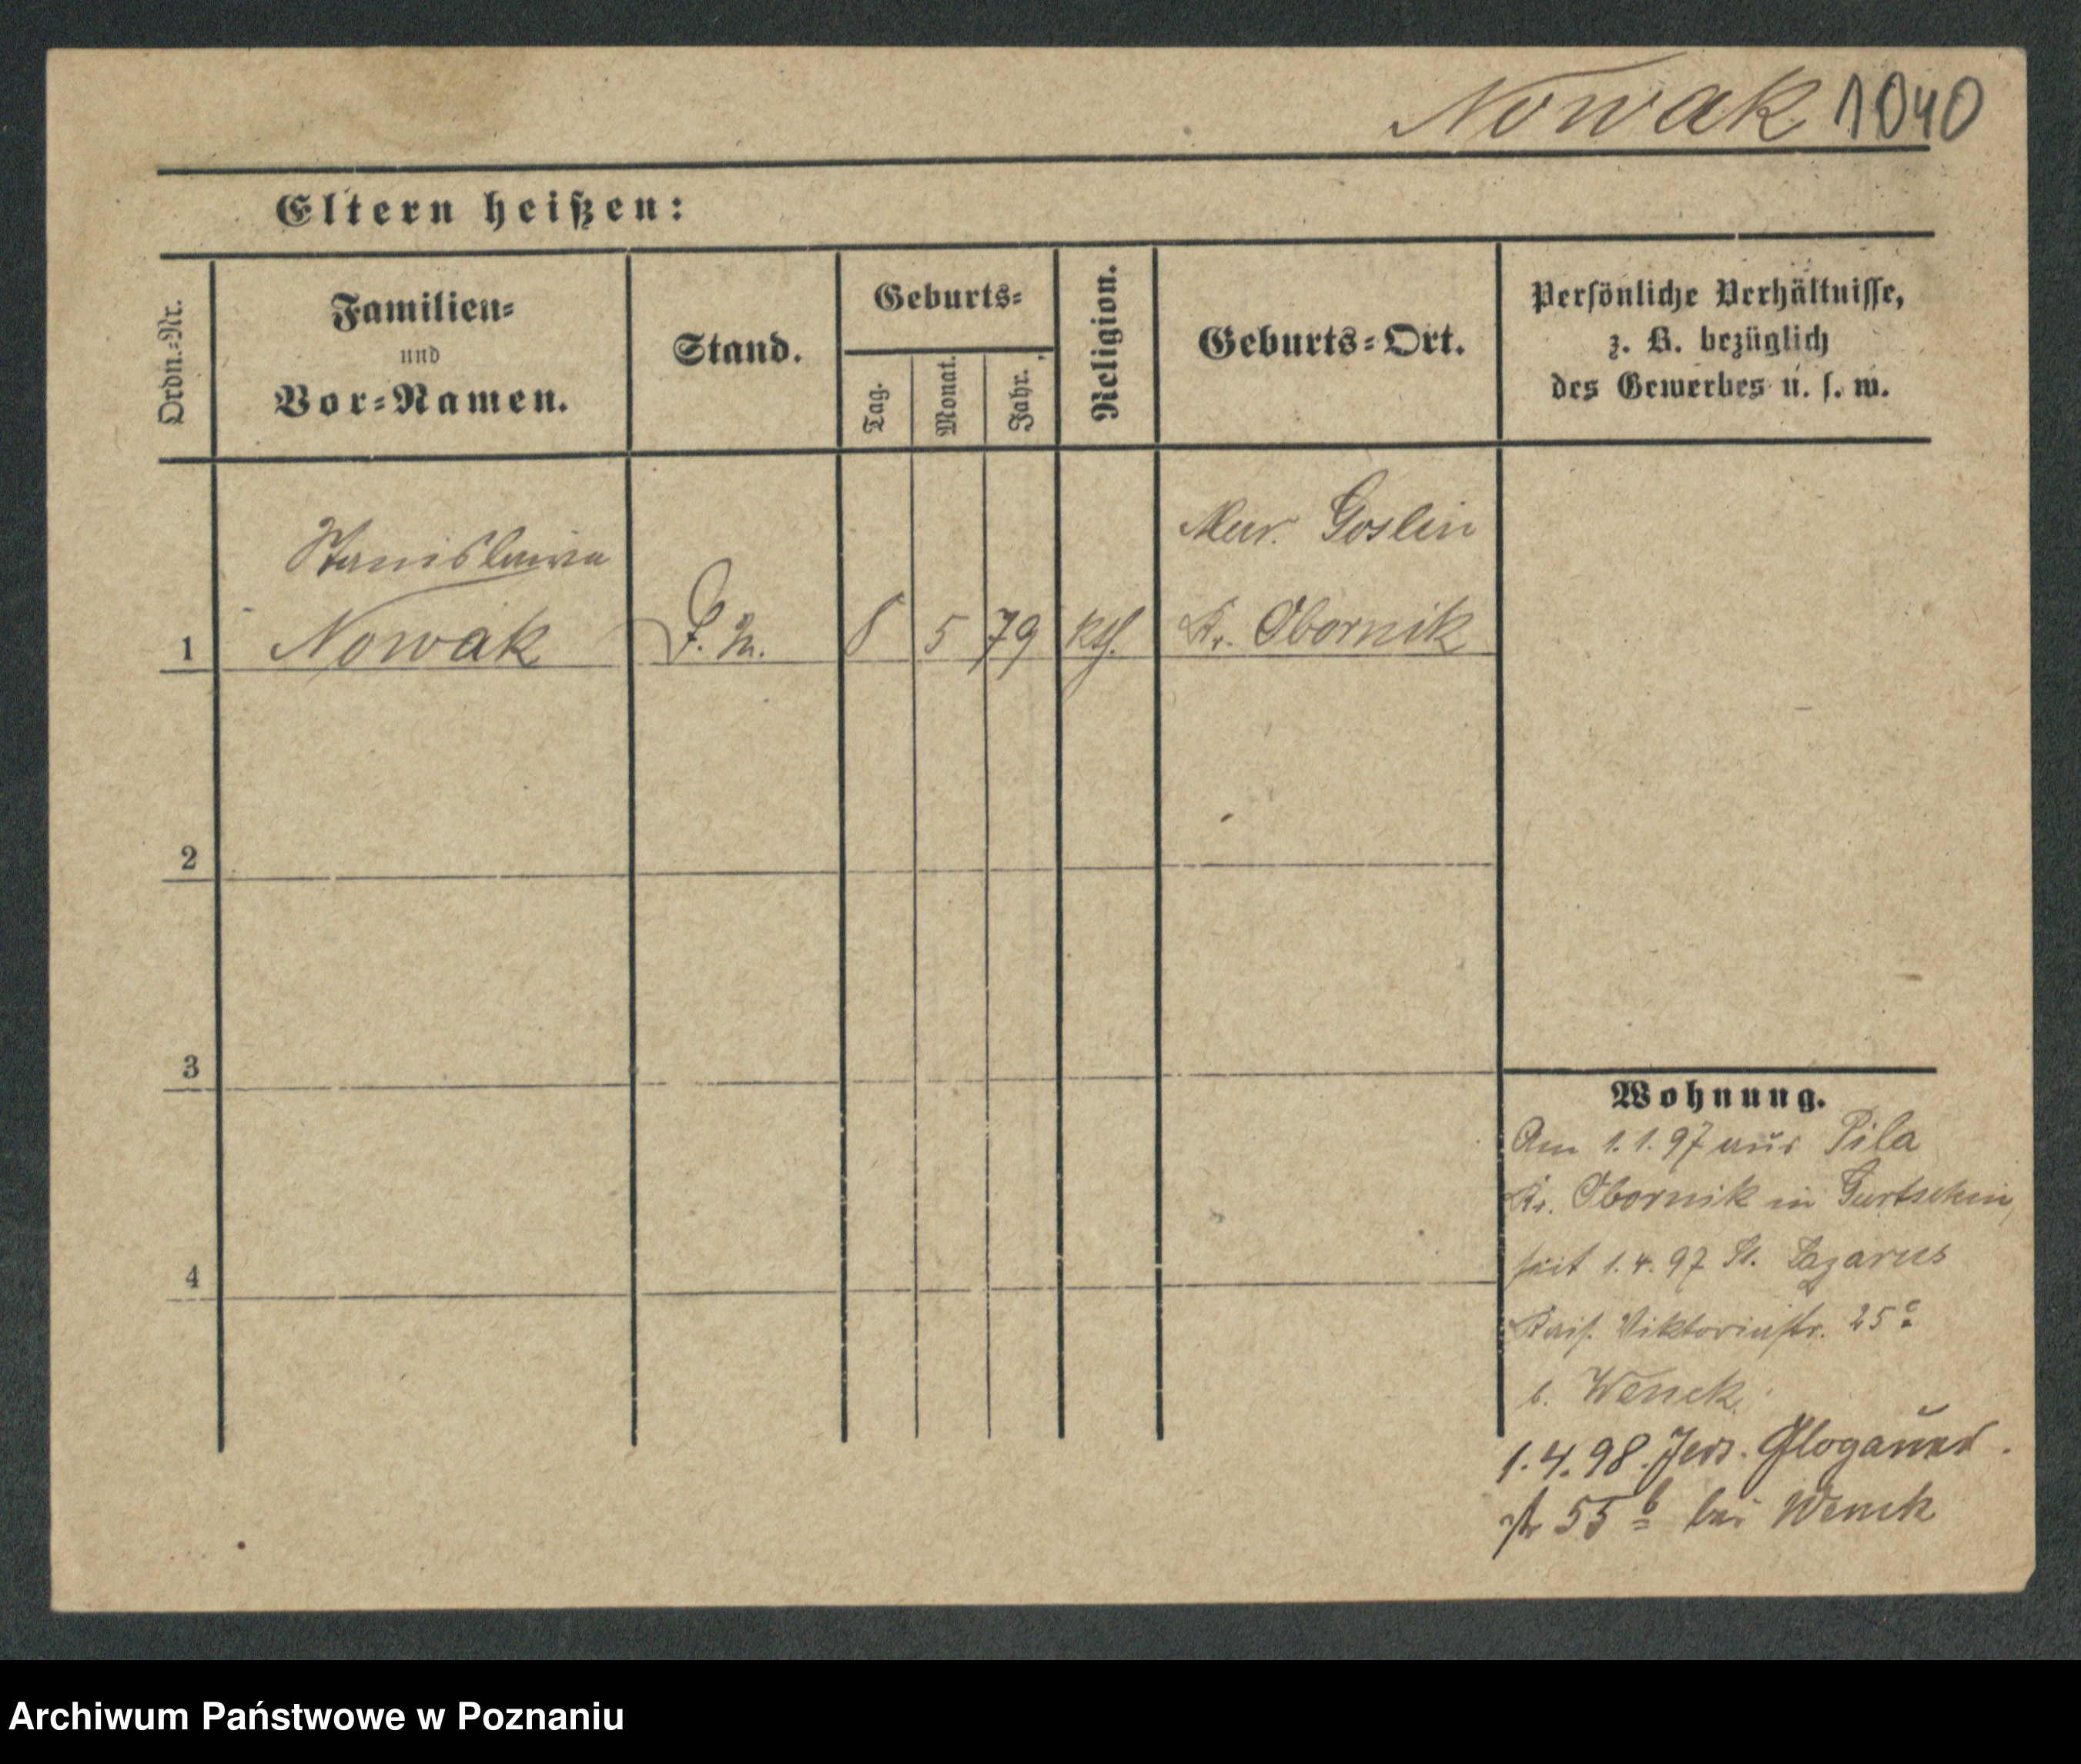 Nowak 1040
Eltern heißen:
Ordn.-Nr.
Familien-
und
Vor-Namen.
Stand.
Geburts-
Tag.
Monat.
Jahr.
Religion.
Geburts-Ort.
Persönliche Verhältnisse,
z. B. bezüglich
des Gewerbes u. s. w.
Stanislawa
Mur. Goslin
1 Nowak 8 5 79 kth. Kr. Obornik
2
3
4
Wohnung.
Am 1.1.97 aus Pila
Kr. Obornik in Gurtschin,
seit 1.4.97 St. Lazarus
Kais. Viktoriastr. 25
b. Wenck.
1.4.98. Jers. Glogauer
str 55 b bei Wenck
Archiwum Państwowe w Poznaniu